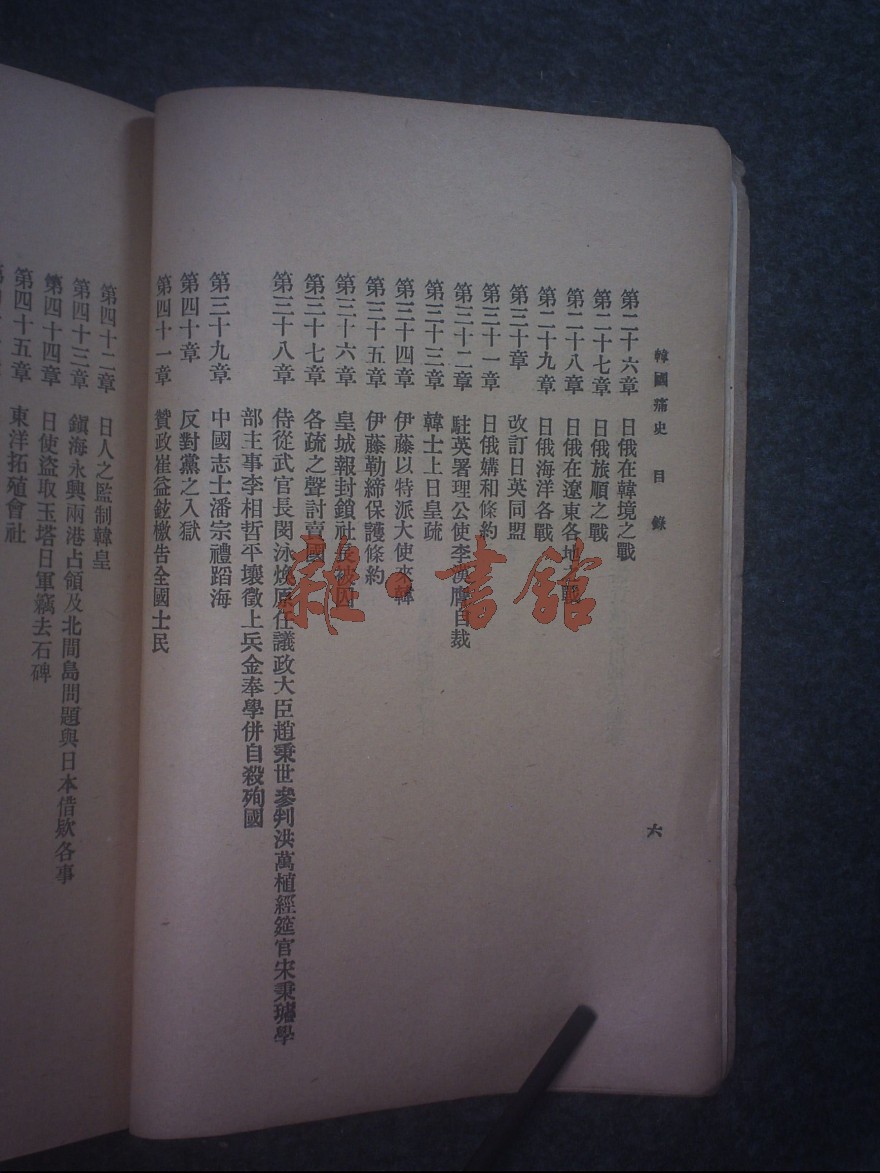 韓國痛史 目錄 六
第二十六章 日俄在韓境之戰
第二十七章 日俄旅順之戰
第二十八章 日俄在遼東各地之戰
第二十九章 日俄海洋各戰
第三十章 改訂日英同盟
第三十一章 日俄媾和條約
第三十二章 駐英署理公使李漢膺自裁
第三十三章 韓士上日皇疏
第三十四章 伊藤以特派大使來韓
第三十五章 伊藤勒締保護條約
第三十六章 皇城報封鎖社員被囚
第三十七章 各疏之聲討賣國
第三十八章 侍從武官長閔泳煥原任議政大臣趙秉世參判洪萬植經筵官宋秉璿學
部主事李相哲平壤徵上兵金奉學併自殺殉國
第三十九章 中國志士潘宗禮蹈海
第四十章 反對黨之入獄
第四十一章 贊政崔益鉉檄告全國士民
第四十二章 日人之監制韓皇
第四十三章 鎭海永興兩港占領及北間島問題與日本借欵各事
第四十四章 日使盜取玉塔日軍竊去石碑
第四十五章 東洋拓殖會社
雜·書館